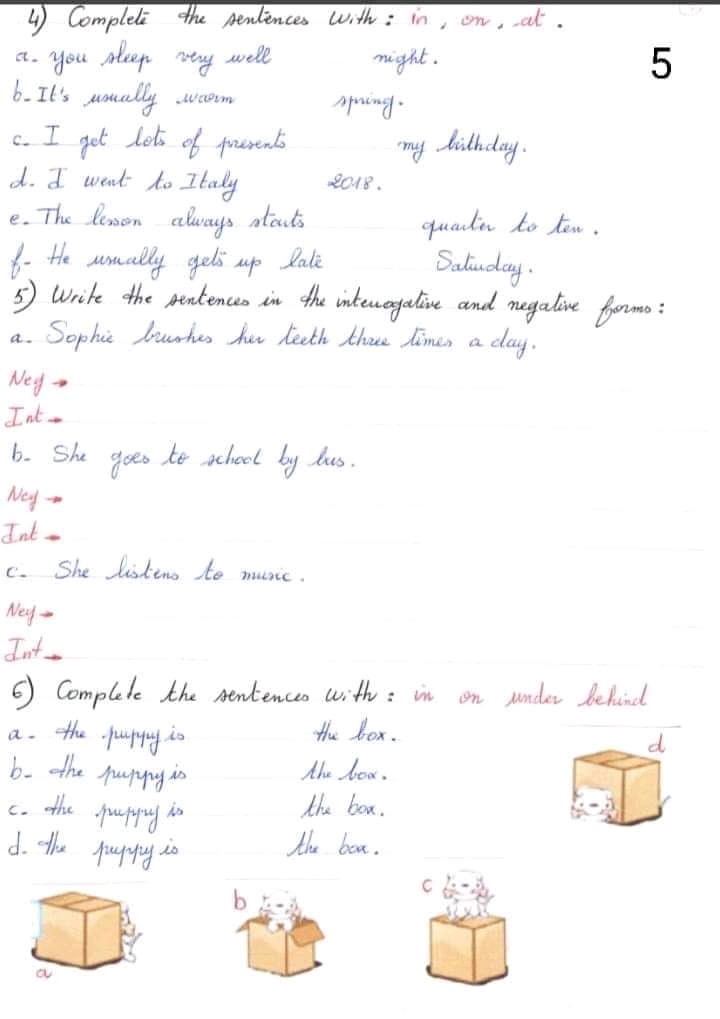 4) Complete the sentences with : in , on , at .
a- you sleep very well night .
5
b- It's usually warm spring .
c- I get lots of presents my birthday .
d. I went to Italy 2018 .
e- The lesson always starts quarter to ten .
f- He usually gets up late Saturday .
5) Write the sentences in the interrogative and negative forms :
a- Sophie brushes her teeth three times a day .
Neg →
Int →
b- She goes to school by bus .
Neg →
Int →
c- She listens to music .
Neg →
Int →
6) Complete the sentences with : in on under behind
a- the puppy is the box .
b- the puppy is the box .
c- the puppy is the box .
d- the puppy is the box .
d
a
b
c